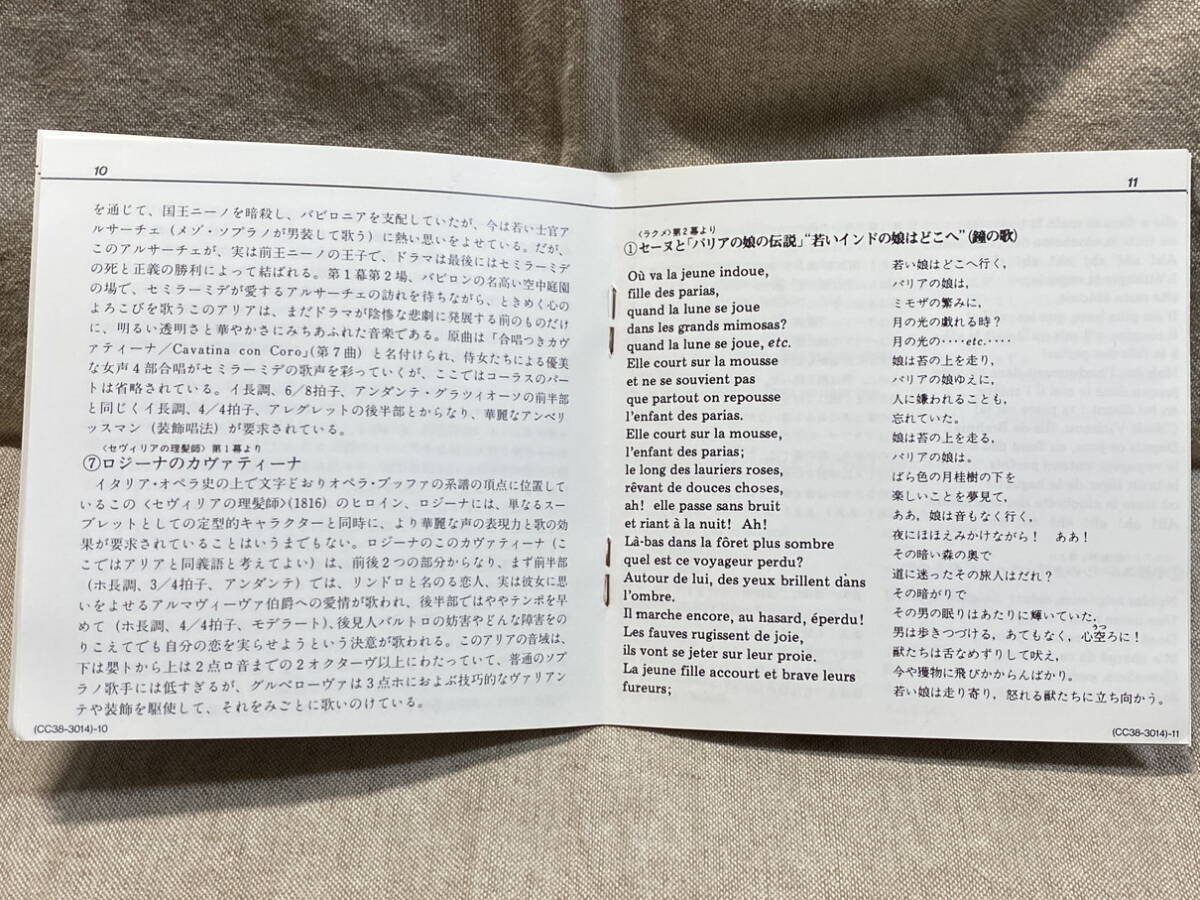 10
を通じて、国王ニーノを暗殺し、バビロニアを支配していたが、今は若い士官ア
ルサーチェ（メゾ・ソプラノが男装して歌う）に熱い思いをよせている。だが、
このアルサーチェが、実は前王ニーノの王子で、ドラマは最後にはセミラーミデ
の死と正義の勝利によって結ばれる。第1幕第2場、バビロンの名高い空中庭園
の場で、セミラーミデが愛するアルサーチェの訪れを待ちながら、ときめく心の
よろこびを歌うこのアリアは、まだドラマが陰惨な悲劇に発展する前のものだけ
に、明るい透明さと華やかさにみちあふれた音楽である。原曲は「合唱つきカヴ
ァティーナ／Cavatina con Coro」(第7曲）と名付けられ、侍女たちによる優美
な女声4部合唱がセミラーミデの歌声を彩っていくが、ここではコーラスのパー
トは省略されている。イ長調、6/8拍子、アンダンテ・グラツィオーソの前半部
と同じくイ長調、4/4拍子、アレグレットの後半部とからなり、華麗なアンベリ
ッスマン（装飾唱法）が要求されている。
〈セヴィリアの理髪師〉第1幕より
⑦ロジーナのカヴァティーナ
イタリア・オペラ史の上で文字どおりオペラ・ブッファの系譜の頂点に位置して
いるこの〈セヴィリアの理髪師〉(1816）のヒロイン、ロジーナには、単なるスー
ブレットとしての定型的キャラクターと同時に、より華麗な声の表現力と歌の効
果が要求されていることはいうまでもない。ロジーナのこのカヴァティーナ（こ
こではアリアと同義語と考えてよい）は、前後2つの部分からなり、まず前半部
(ホ長調、3/4拍子、アンダンテ）では、リンドロと名のる恋人、実は彼女に思
いをよせるアルマヴィーヴァ伯爵への愛情が歌われ、後半部ではややテンポを早
めて（ホ長調、4/4拍子、モデラート)、後見人バルトロの妨害やどんな障害をの
りこえてでも自分の恋を実らせようという決意が歌われる。このアリアの音域は、
下は嬰トから上は2点ロ音までの2オクターヴ以上にわたっていて、普通のソプ
ラノ歌手には低すぎるが、グルベローヴァは3点ホにおよぶ技巧的なヴァリアン
テや装飾を駆使して、それをみごとに歌いのけている。
(CC38-3014)-10
11
〈ラクメ〉第2幕より
①セーヌと「パリアの娘の伝説」“若いインドの娘はどこへ”(鐘の歌)
Où va la jeune indoue,
fille des parias,
quand la lune se joue
dans les grands mimosas?
quand la lune se joue, etc.
Elle court sur la mousse
et ne se souvient pas
que partout on repousse
l'enfant des parias.
Elle court sur la mousse,
l'enfant des parias;
le long des lauriers roses,
rêvant de douces choses,
ah! elle passe sans bruit
et riant à la nuit! Ah!
Là-bas dans la fôret plus sombre
quel est ce voyageur perdu?
Autour de lui, des yeux brillent dans
l'ombre.
Il marche encore, au hasard, éperdu!
Les fauves rugissent de joie,
ils vont se jeter sur leur proie.
La jeune fille accourt et brave leurs
fureurs;
若い娘はどこへ行く，
パリアの娘は，
ミモザの繁みに，
月の光の戯れる時？
月の光の‥‥etc.‥‥
娘は苔の上を走り，
パリアの娘ゆえに，
人に嫌われることも，
忘れていた。
娘は苔の上を走る，
パリアの娘は。
ばら色の月桂樹の下を
楽しいことを夢見て，
ああ，娘は音もなく行く，
夜にほほえみかけながら！　ああ！
その暗い森の奥で
道に迷ったその旅人はだれ？
その暗がりで
その男の眠りはあたりに輝いていた，
男は歩きつづける，あてもなく，心空うつろに！
獣たちは舌なめずりして吠え，
今や獲物に飛びかからんばかり。
若い娘は走り寄り，怒れる獣たちに立ち向かう。
(CC38-3014)-11